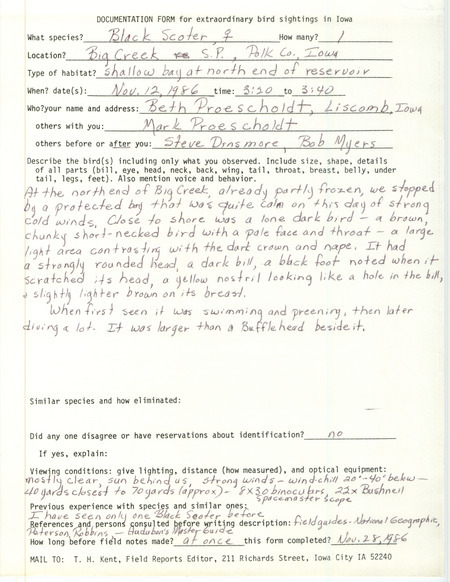 DOCUMENTATION FORM for extraordinary bird sightings in Iowa
What species? Black Scoter, ♀ How many? 1
Location? Big Creek S.P., Polk Co., Iowa
Type of habitat? shallow bay at north end of reservoir
When? date(s): Nov. 12, 1986 time: 3:20 to 3:40
Who?your name and address: Beth Proescholdt, Liscomb, Iowa
others with you: Mark Proescholdt
others before or after you: Steve Dinsmore, Bob Myers
Describe the bird(s) including only what you observed. Include size, shape, details
of all parts (bill, eye, head, neck, back, wing, tail, throat, breast, belly, under
tail, legs, feet). Also mention voice and behavior.
At the north end of Big Creek, already partly frozen, we stopped
by a protected bay that was quite calm on this day of strong
cold winds. Close to shore was a lone dark bird - a brown,
chunky short-necked bird with a pale face and throat - a large
light area contrasting with the dark crown and nape. It had
a strongly rounded head, a dark bill, a black foot noted when it
scratched its head, a yellow nostril looking like a hole in the bill,
a slightly lighter brown on its breast.
When first seen it was swimming and preening, then later
diving a lot. It was larger than a Bufflehead beside it.
Similar species and how eliminated:
Did any one disagree or have reservations about identification? no
If yes, explain:
Viewing conditions: give lighting, distance (how measured), and optical equipment:
mostly clear, sun behind us, strong winds - windchill 20°-40° below -
40 yards closest to 70 yards (approx) - 8x30 binoculars, 22x Bushnell
spacemaster scope
Previous experience with species and similar ones:
I have seen only one Black Scoter before
References and persons consulted before writing description: field guides - National Geographic,
Peterson, Robbins - Audubon's Master Guide
How long before field notes made? at once this form completed? Nov. 28, 1986
MAIL TO: T. H. Kent, Field Reports Editor, 211 Richards Street, Iowa City IA 52240